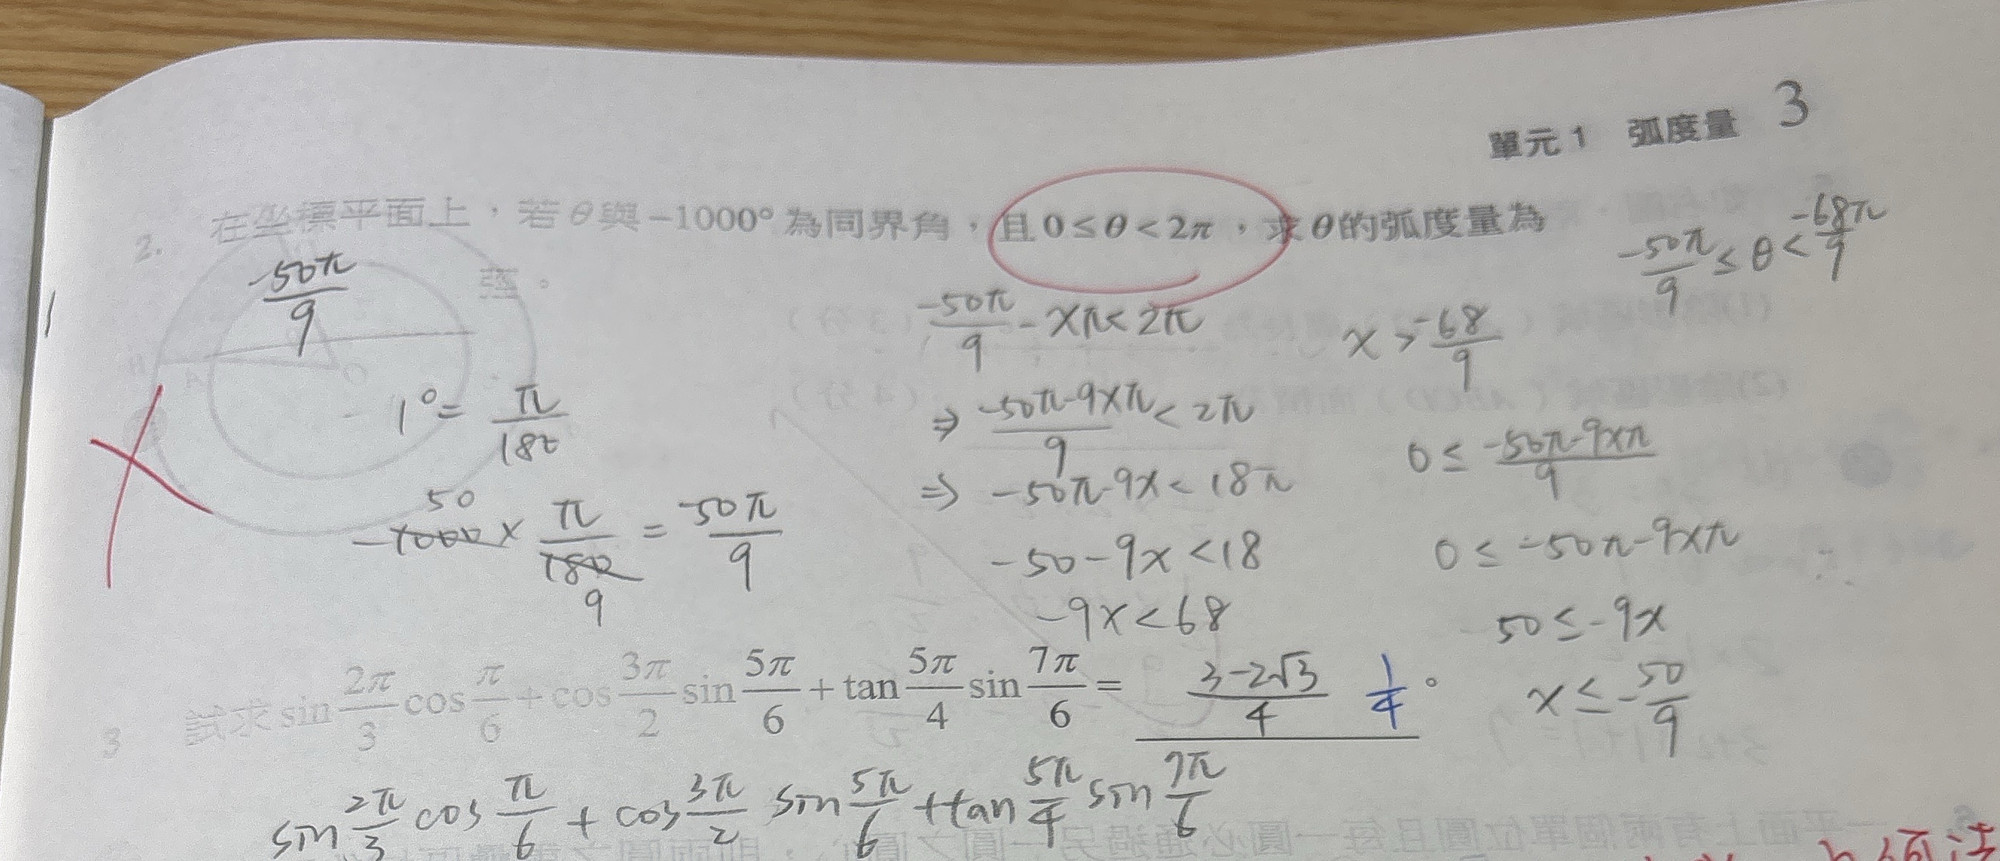 單元1 弧度量 3
2. 在坐標平面上，若θ與−1000°為同界角，且0≤θ<2π，求θ的弧度量為
-50π/9
弳。
-50π/9 ≤ θ < -68π/9
1° = π/180
-1000 × π/180 = -50π/9
50
9
-50π/9 - xπ < 2π
⇒ -50π-9xπ/9 < 2π
⇒ -50π-9x < 18π
-50-9x < 18
-9x < 68
x > -68/9
0 ≤ -50π-9xπ/9
0 ≤ -50π-9xπ
50 ≤ -9x
x ≤ -50/9
3 試求 sin 2π/3 cos π/6 + cos 3π/2 sin 5π/6 + tan 5π/4 sin 7π/6 = 3-2√3/4 1/4 。
sin 2π/3 cos π/6 + cos 3π/2 sin 5π/6 + tan 5π/4 sin 7π/6